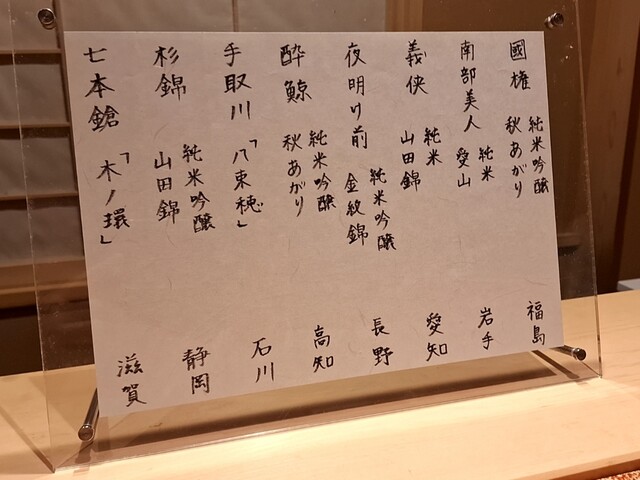 國権 純米吟醸 秋あがり 福島
南部美人 純米 愛山 岩手
義侠 純米 山田錦 愛知
夜明け前 純米吟醸 金紋錦 長野
酔鯨 純米吟醸 秋あがり 高知
手取川 「八束穂」 石川
杉錦 純米吟醸 山田錦 静岡
七本鎗 「木ノ環」 滋賀